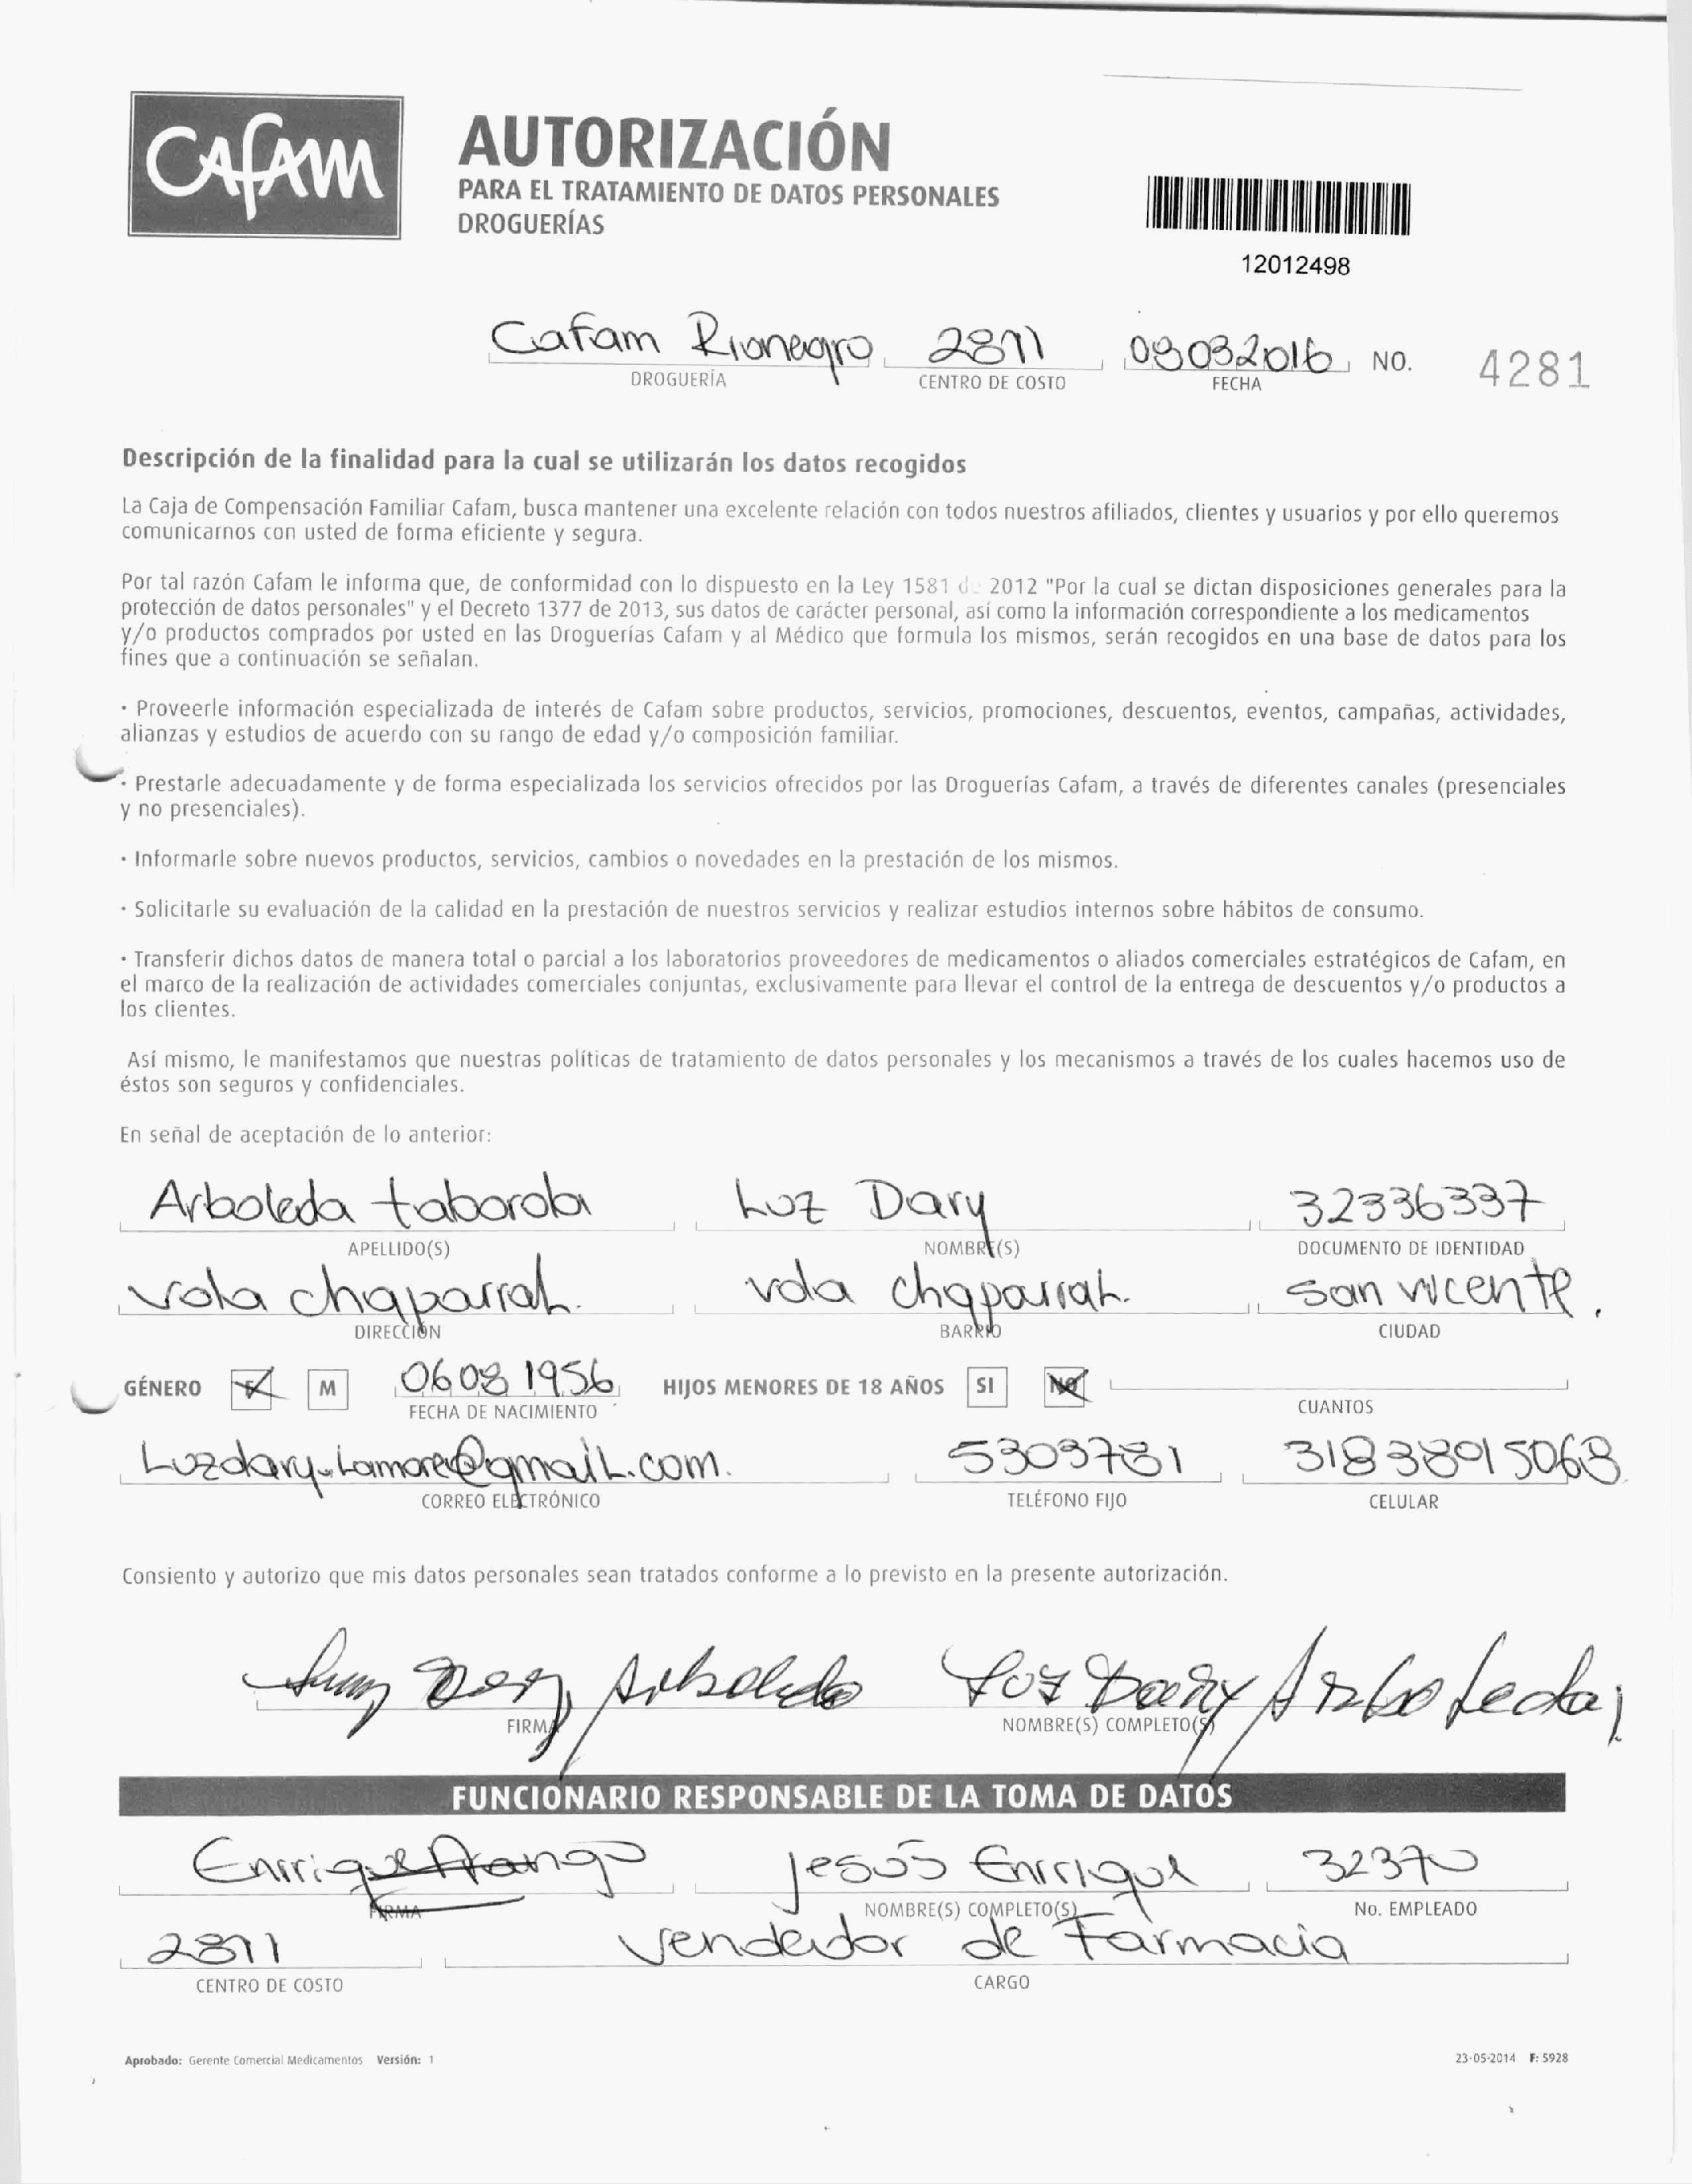 CAFAM
AUTORIZACIÓN
PARA EL TRATAMIENTO DE DATOS PERSONALES
DROGUERÍAS
12012498
Cafam Rionegro 2811 09032016 NO. 4281
DROGUERÍA CENTRO DE COSTO FECHA
Descripción de la finalidad para la cual se utilizarán los datos recogidos
La Caja de Compensación Familiar Cafam, busca mantener una excelente relación con todos nuestros afiliados, clientes y usuarios y por ello queremos
comunicarnos con usted de forma eficiente y segura.
Por tal razón Cafam le informa que, de conformidad con lo dispuesto en la Ley 1581 de 2012 "Por la cual se dictan disposiciones generales para la
protección de datos personales" y el Decreto 1377 de 2013, sus datos de carácter personal, así como la información correspondiente a los medicamentos
y/o productos comprados por usted en las Droguerías Cafam y al Médico que formula los mismos, serán recogidos en una base de datos para los
fines que a continuación se señalan.
· Proveerle información especializada de interés de Cafam sobre productos, servicios, promociones, descuentos, eventos, campañas, actividades,
alianzas y estudios de acuerdo con su rango de edad y/o composición familiar.
· Prestarle adecuadamente y de forma especializada los servicios ofrecidos por las Droguerías Cafam, a través de diferentes canales (presenciales
y no presenciales).
· Informarle sobre nuevos productos, servicios, cambios o novedades en la prestación de los mismos.
· Solicitarle su evaluación de la calidad en la prestación de nuestros servicios y realizar estudios internos sobre hábitos de consumo.
· Transferir dichos datos de manera total o parcial a los laboratorios proveedores de medicamentos o aliados comerciales estratégicos de Cafam, en
el marco de la realización de actividades comerciales conjuntas, exclusivamente para llevar el control de la entrega de descuentos y/o productos a
los clientes.
Así mismo, le manifestamos que nuestras políticas de tratamiento de datos personales y los mecanismos a través de los cuales hacemos uso de
éstos son seguros y confidenciales.
En señal de aceptación de lo anterior:
Arboleda taborda Luz Dary 32336337
APELLIDO(S) NOMBRE(S) DOCUMENTO DE IDENTIDAD
vda chaparral. vda chaparral. San vicente.
DIRECCIÓN BARRIO CIUDAD
GÉNERO F M 06081956 HIJOS MENORES DE 18 AÑOS SI NO
FECHA DE NACIMIENTO CUANTOS
5303781
CORREO ELECTRÓNICO TELÉFONO FIJO CELULAR
Consiento y autorizo que mis datos personales sean tratados conforme a lo previsto en la presente autorización.
Luz Dary Arboleda Luz Dary Arboleda
FIRMA NOMBRE(S) COMPLETO(S)
FUNCIONARIO RESPONSABLE DE LA TOMA DE DATOS
Enrique Arango Jesús Enrique 32370
FIRMA NOMBRE(S) COMPLETO(S) No. EMPLEADO
2811 Vendedor de Farmacia
CENTRO DE COSTO CARGO
Aprobado: Gerente Comercial Medicamentos Versión: 1 23-05-2014 F: 5928